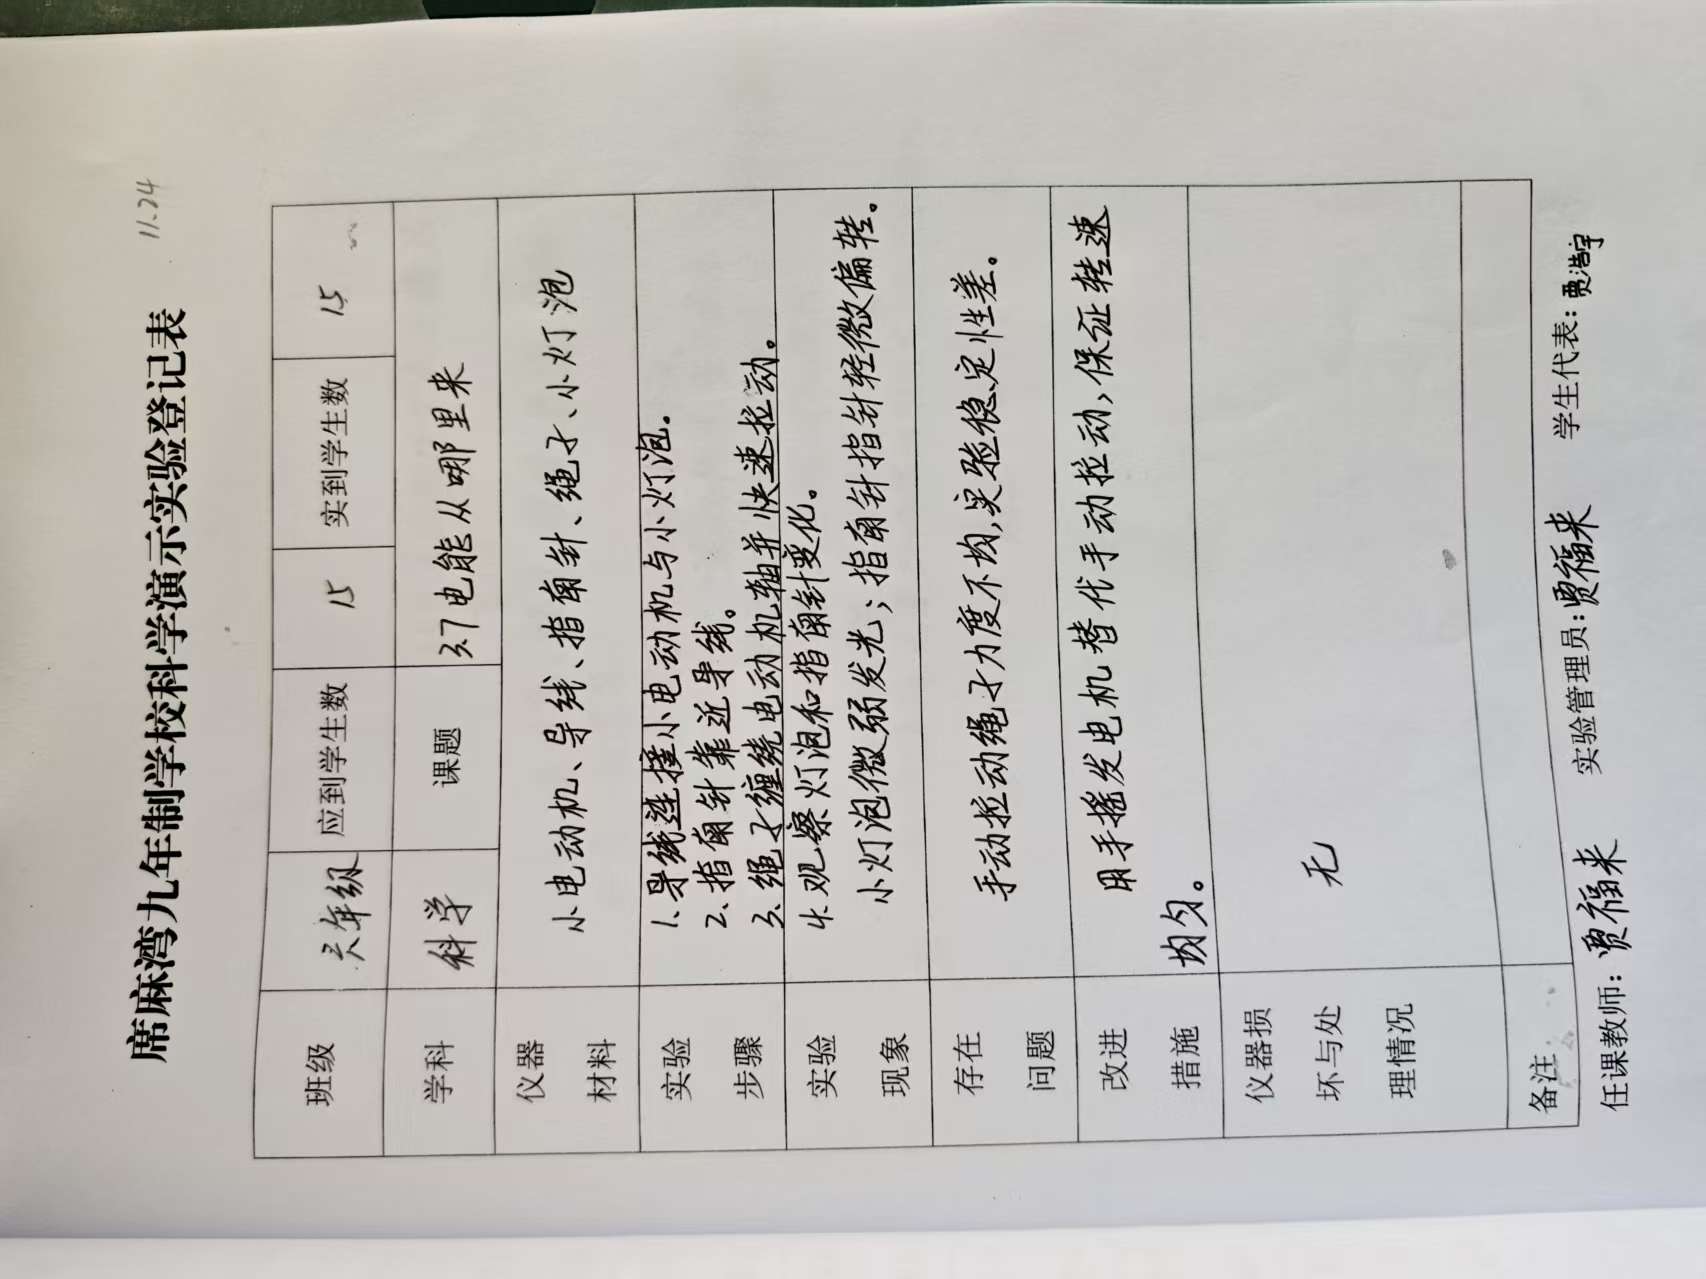 11.24
席麻湾九年制学校科学演示实验登记表
班级 六年级 应到学生数 15 实到学生数 15
学科 科学 课题 3.7电能从哪里来
仪器
材料
小电动机、导线、指南针、绳子、小灯泡
实验
步骤
1.导线连接小电动机与小灯泡。
2.指南针靠近导线。
3.绳子缠绕电动机轴并快速拉动。
4.观察灯泡和指南针变化。
实验
现象
小灯泡微弱发光；指南针指针轻微偏转。
存在
问题
手动拉动绳子力度不均，实验稳定性差。
改进
措施
用手摇发电机替代手动拉动，保证转速
均匀。
仪器损
坏与处
理情况
无
备注
任课教师：贾福来 实验管理员：贾福来 学生代表：贾浩宇